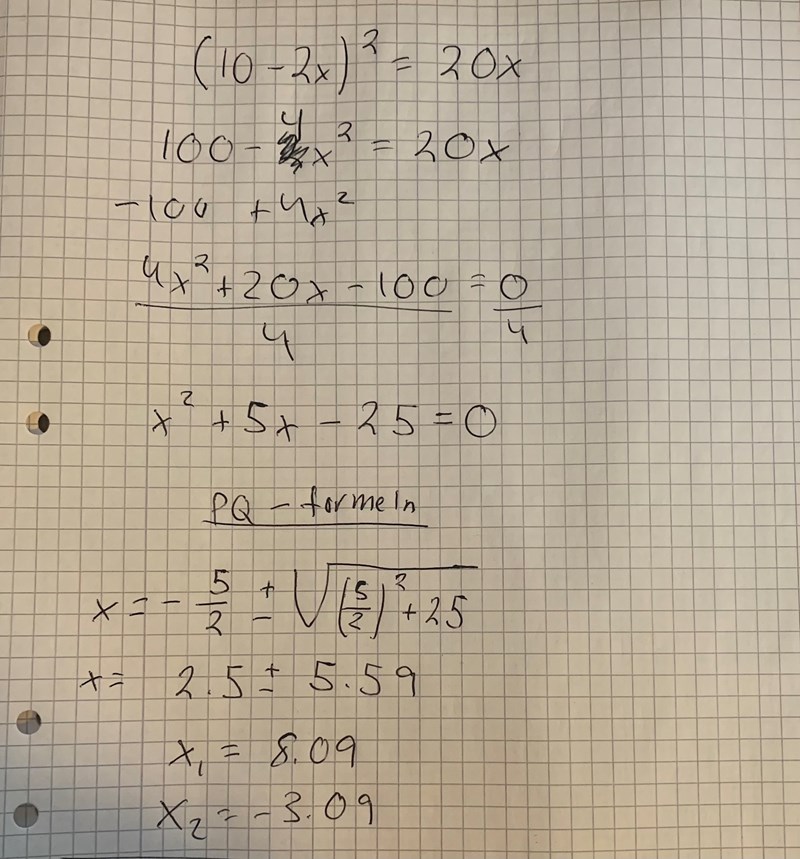 (10 - 2x)² = 20x
100 - 4x² = 20x
-100 + 4x²
4x² + 20x - 100 = 0
4 4
x² + 5x - 25 = 0
PQ - formeln
x = - 5/2 ± √((5/2)² + 25)
x = 2.5 ± 5.59
x₁ = 8.09
x₂ = -3.09